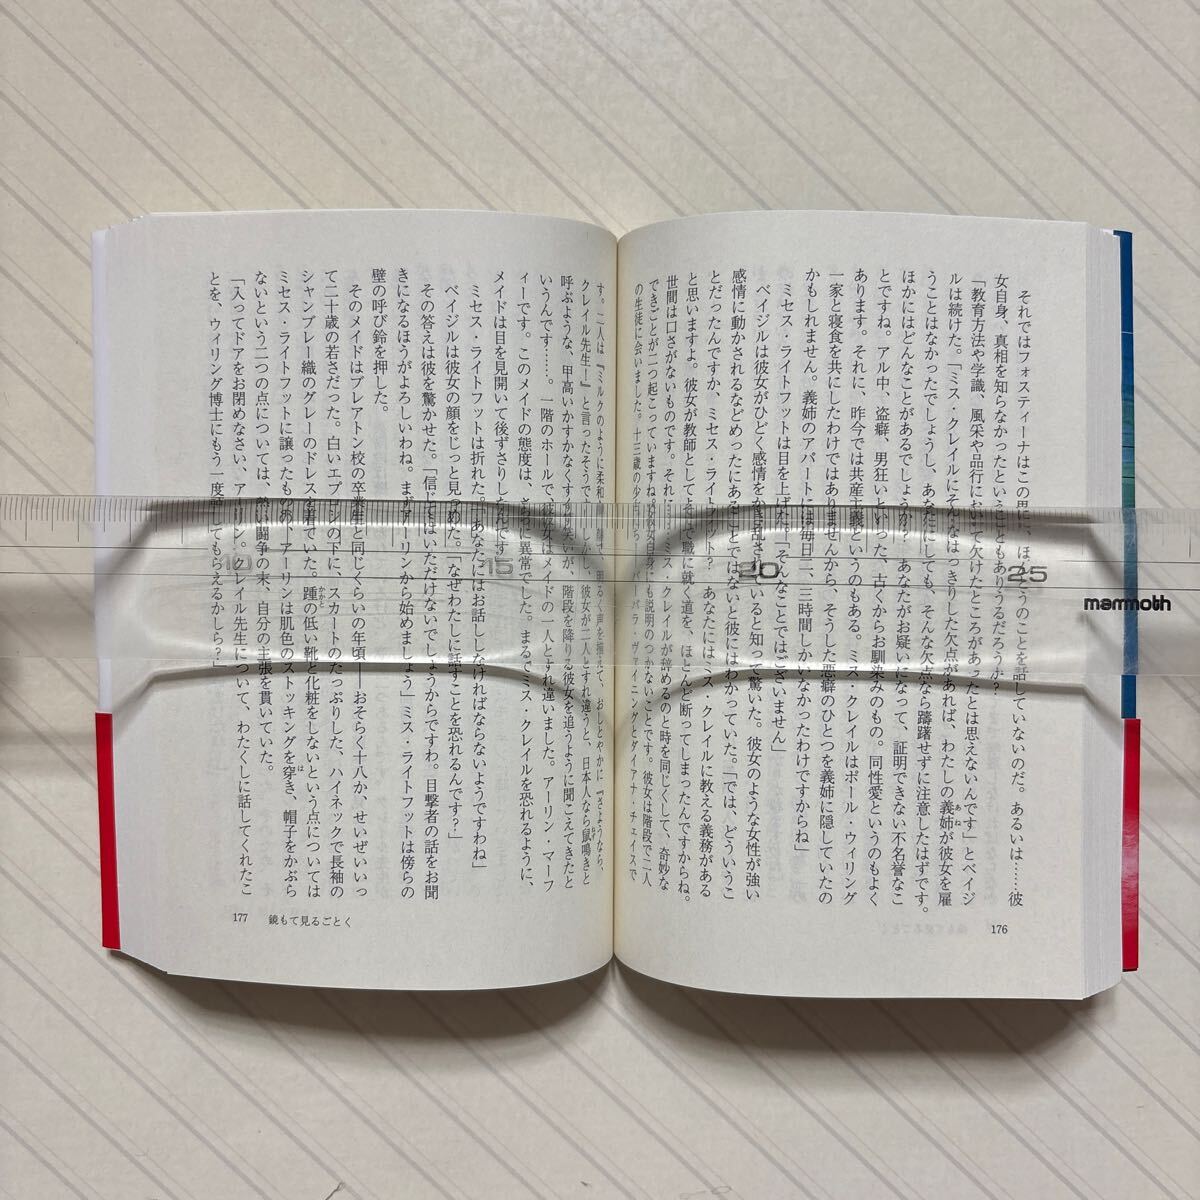 それではフォスティーナはこの男に、ほんとうのことを話していないのだ。あるいは……彼
女自身、真相を知らなかったということもありうるだろうか?
「教育方法や学識、風采や品行において欠けたところがあったとは思えないんです」とベイジ
ルは続けた。「ミス・クレイルにそんなはっきりした欠点があれば、わたしの義姉が彼女を雇
うことはなかったでしょうし、あなたにしても、そんな欠点なら躊躇せずに注意したはずです。
ほかにはどんなことがあるでしょうか? あなたがお疑いになって、証明できない不名誉なこ
とですね。アル中、盗癖、男狂いといった、古くからお馴染みのもの。同性愛というのもよく
あります。それに、昨今では共産主義というのもある。ミス・クレイルはポール・ウィリング
一家と寝食を共にしたわけではありませんから、そうした悪癖のひとつを義姉に隠していたの
かもしれません。義姉のアパートには毎日二、三時間しかいなかったわけですからね」
ミセス・ライトフットは目を上げた。「そんなことではございません」
ベイジルは彼女がひどく感情をかき乱されていると知って驚いた。彼女のような女性が強い
感情に動かされるなどめったにあることではないと彼にはわかっていた。「では、どういうこ
とだったんですか、ミセス・ライトフット? あなたにはミス・クレイルに教える義務がある
と思いますよ。彼女が教師としてよそで職に就く道を、ほとんど断ってしまったんですからね。
世間は口さがないものです。それに
ミス・クレイルが辞めるのと時を同じくして、奇妙な
できごとが二つ起こっていますね。
彼女自身にも説明のつかないことです。彼女は階段で二人
の生徒に会いました。十三歳の少女たち
バーバラ・ヴァイニングとダイアナ・チェイスで
176
す。二人は『ミルクのように柔和
明るく声を揃えて、おしとやかに『さようなら、
クレイル先生!』と言ったそうです。しかし、彼女が二人とすれ違うと、日本人なら鼠鳴きと
呼ぶような、甲高いかすかなくすくす笑いが、階段を降りる彼女を追うように聞こえてきたと
いうんです……。一階のホールで、彼女はメイドの一人とすれ違いました。アーリン・マーフ
ィーです。このメイドの態度は、さらに異常でした。まるでミス・クレイルを恐れるように、
メイドは目を見開いて後ずさりしたんです」
ミセス・ライトフットは折れた。「あなたにはお話ししなければならないようですわね」
ベイジルは彼女の顔をじっと見つめた。「なぜわたしに話すことを恐れるんです?」
その答えは彼を驚かせた。「信じてはいただけないでしょうからですわ。目撃者の話をお聞
きになるほうがよろしいわね。まずアーリンから始めましょう」ミス・ライトフットは傍らの
壁の呼び鈴を押した。
そのメイドはブレアトン校の卒業生と同じくらいの年頃――おそらく十八か、せいぜいいっ
て二十歳の若さだった。白いエプロンの下に、スカートのたっぷりした、ハイネックで長袖の
シャンブレー織のグレーのドレスを着ていた。踵の低い靴と化粧をしないという点については
ミセス・ライトフットに譲ったものの、アーリンは肌色のストッキングを穿き、帽子をかぶら
ないという二つの点については、熱い闘争の末、自分の主張を貫いていた。
「入ってドアをお閉めなさい、アーリン。クレイル先生について、わたくしに話してくれたこ
とを、ウィリング博士にもう一度話してもらえるかしら?」
177 鏡もて見るごとく
10 15 20 25
mammoth